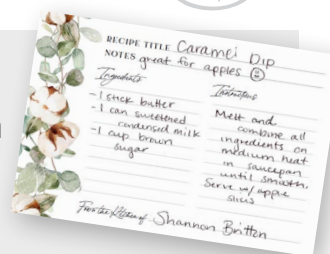 RECIPE TITLE Caramel Dip
NOTES great for apples
Ingredients
- 1 stick butter
- 1 can sweetened
condensed milk
- 1 cup brown
sugar
Instructions
Melt and
combine all
ingredients on
medium heat
in saucepan
until smooth.
Serve w/ apple
slices
From the Kitchen of Shannon Britton